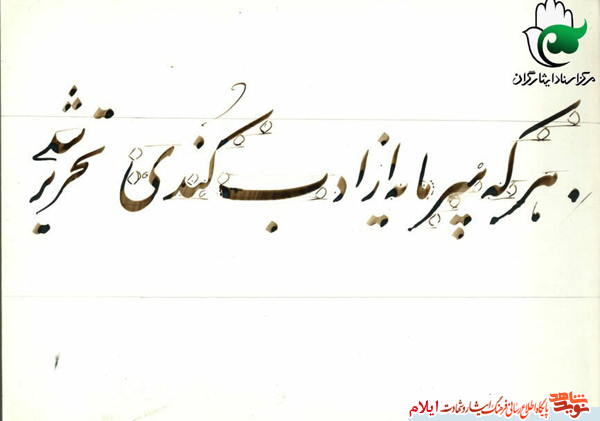 مرکز اسناد ایثارگران
هر که سرمایه از ادب کندی تحریر
نوید شاهد پایگاه اطلاع رسانی فرهنگ ایثار و شهادت ایلام